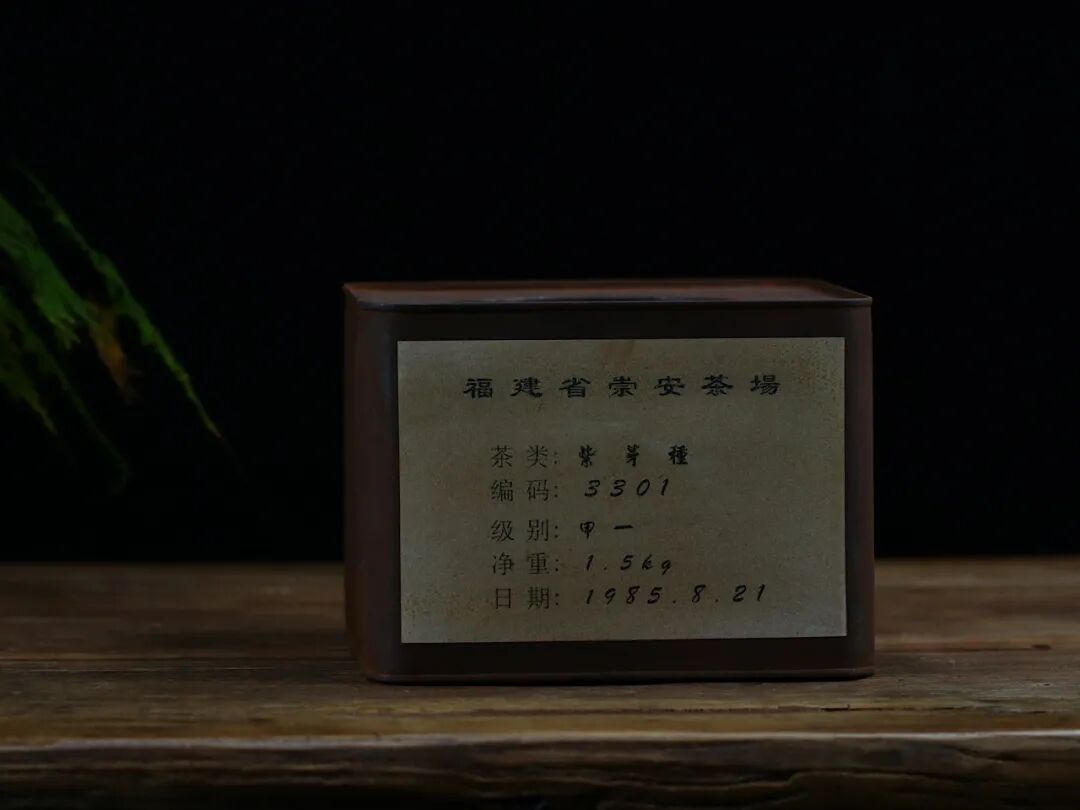 福建省崇安茶場
茶类: 紫芽種
编码: 3301
级别: 甲一
净重: 1.5kg
日期: 1985.8.21